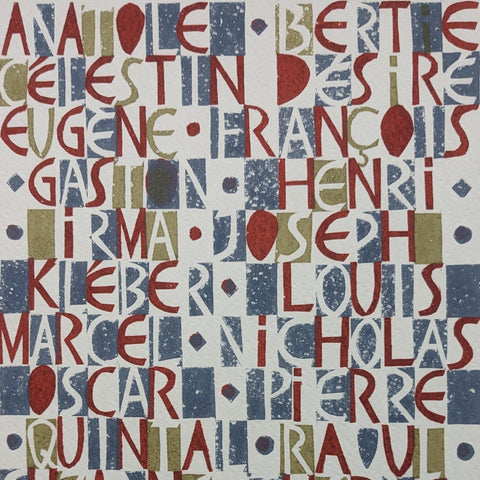 ANATOLE · BERTIE
CÉLESTIN DÉSIRÉ
EUGÈNE · FRANÇOIS
· GASTON · HENRI ·
· IRMA · JOSEPH ·
KLÉBER · LOUIS
MARCEL · NICHOLAS
OSCAR · PIERRE
· QUINTAL · RAOUL ·